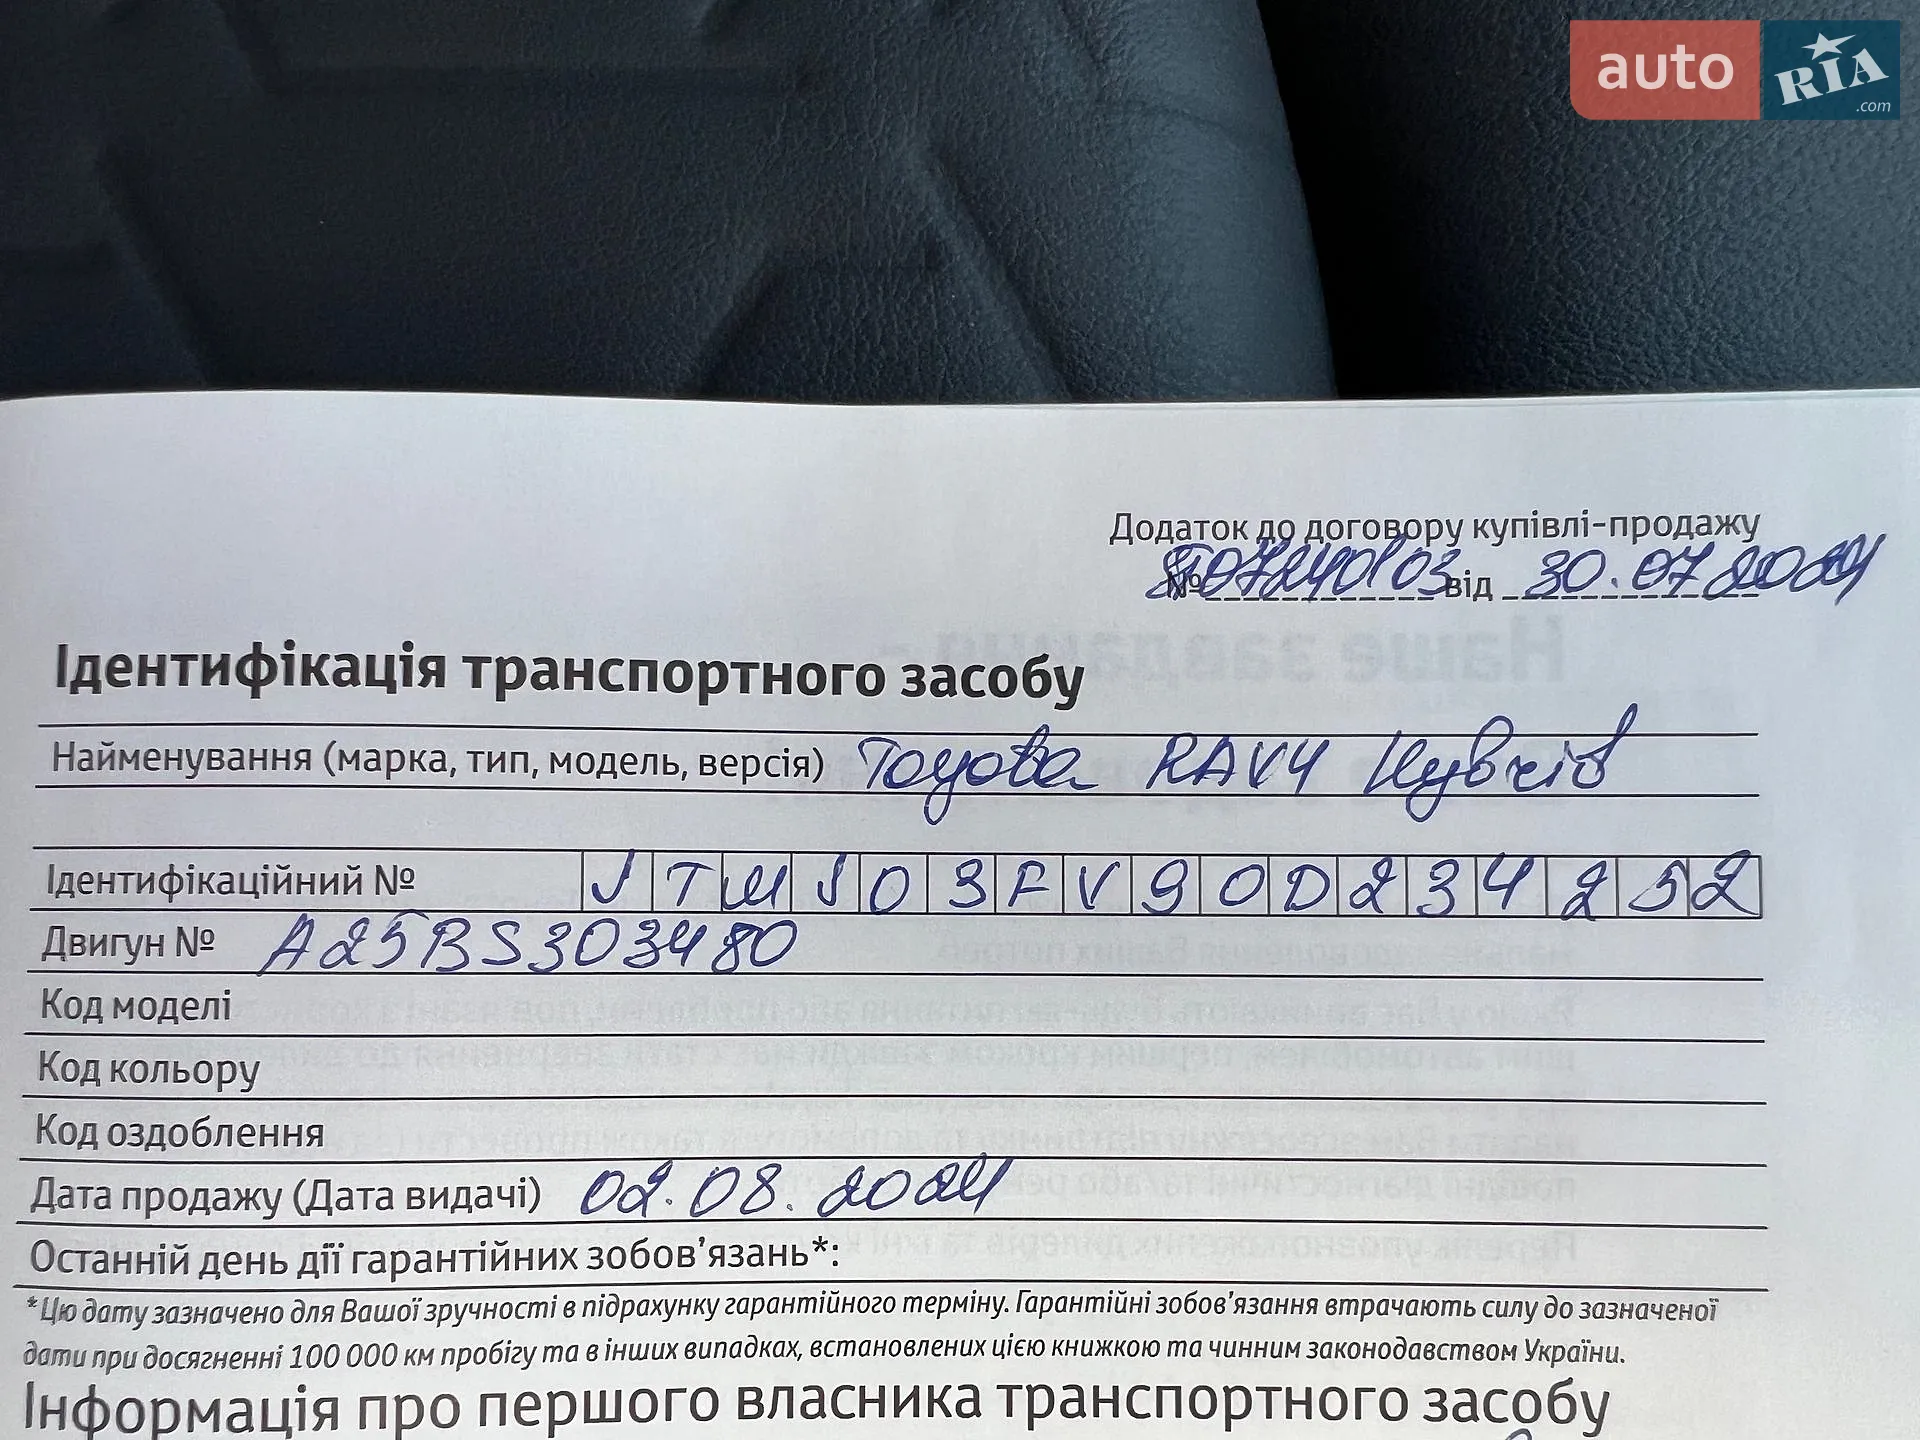 auto RIA .com
Додаток до договору купівлі-продажу
№ 07240103 від 30.07.2024
Ідентифікація транспортного засобу
Найменування (марка, тип, модель, версія) Toyota RAV4 Hybrid
Ідентифікаційний № JTMJ03FV90D234252
Двигун № A25BS303480
Код моделі
Код кольору
Код оздоблення
Дата продажу (Дата видачі) 02.08.2024
Останній день дії гарантійних зобов’язань*:
*Цю дату зазначено для Вашої зручності в підрахунку гарантійного терміну. Гарантійні зобов’язання втрачають силу до зазначеної
дати при досягненні 100 000 км пробігу та в інших випадках, встановлених цією книжкою та чинним законодавством України.
Інформація про першого власника транспортного засобу